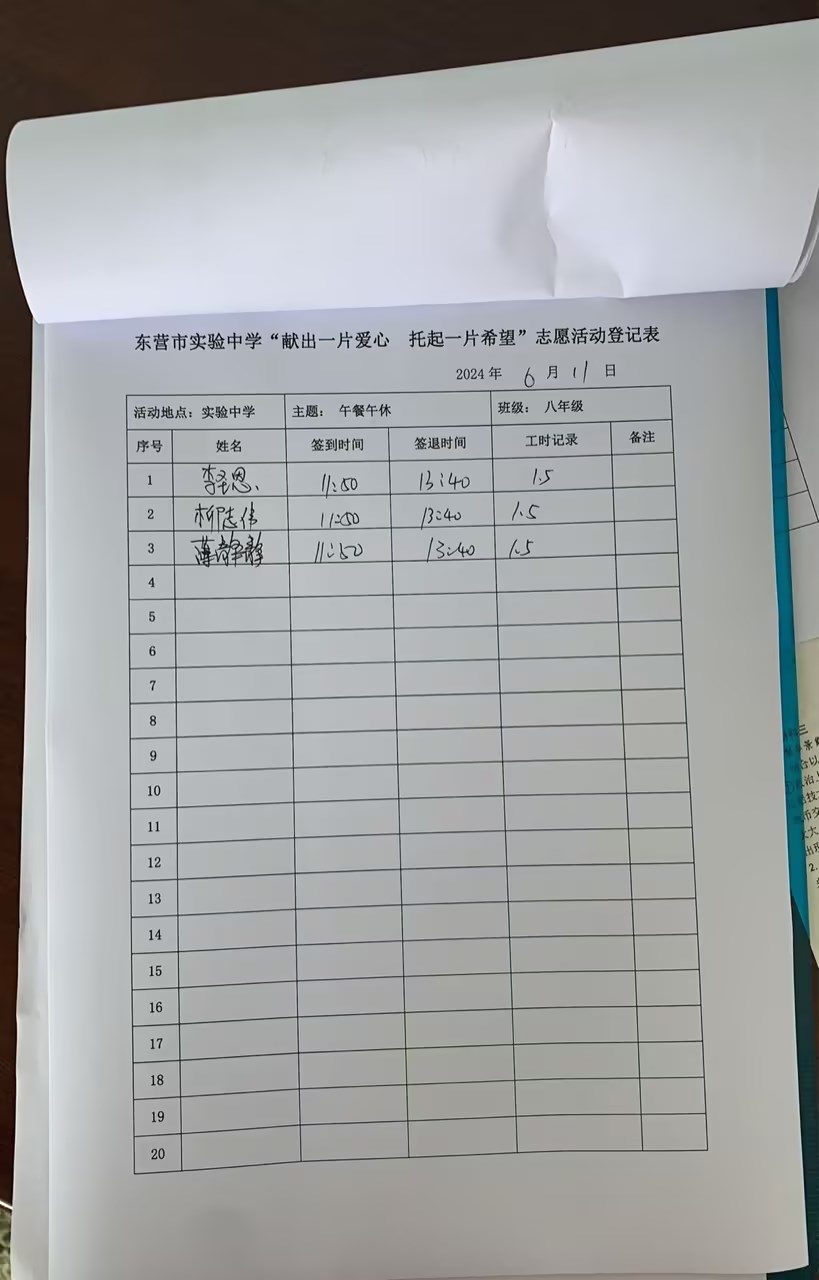 东营市实验中学“献出一片爱心 托起一片希望”志愿活动登记表
2024年 6 月 11 日
活动地点：实验中学 主题： 午餐午休 班级： 八年级
序号 姓名 签到时间 签退时间 工时记录 备注
1 李圣恩 11:50 13:40 1.5
2 柳志伟 11:50 13:40 1.5
3 薄静静 11:50 13:40 1.5
4
5
6
7
8
9
10
11
12
13
14
15
16
17
18
19
20